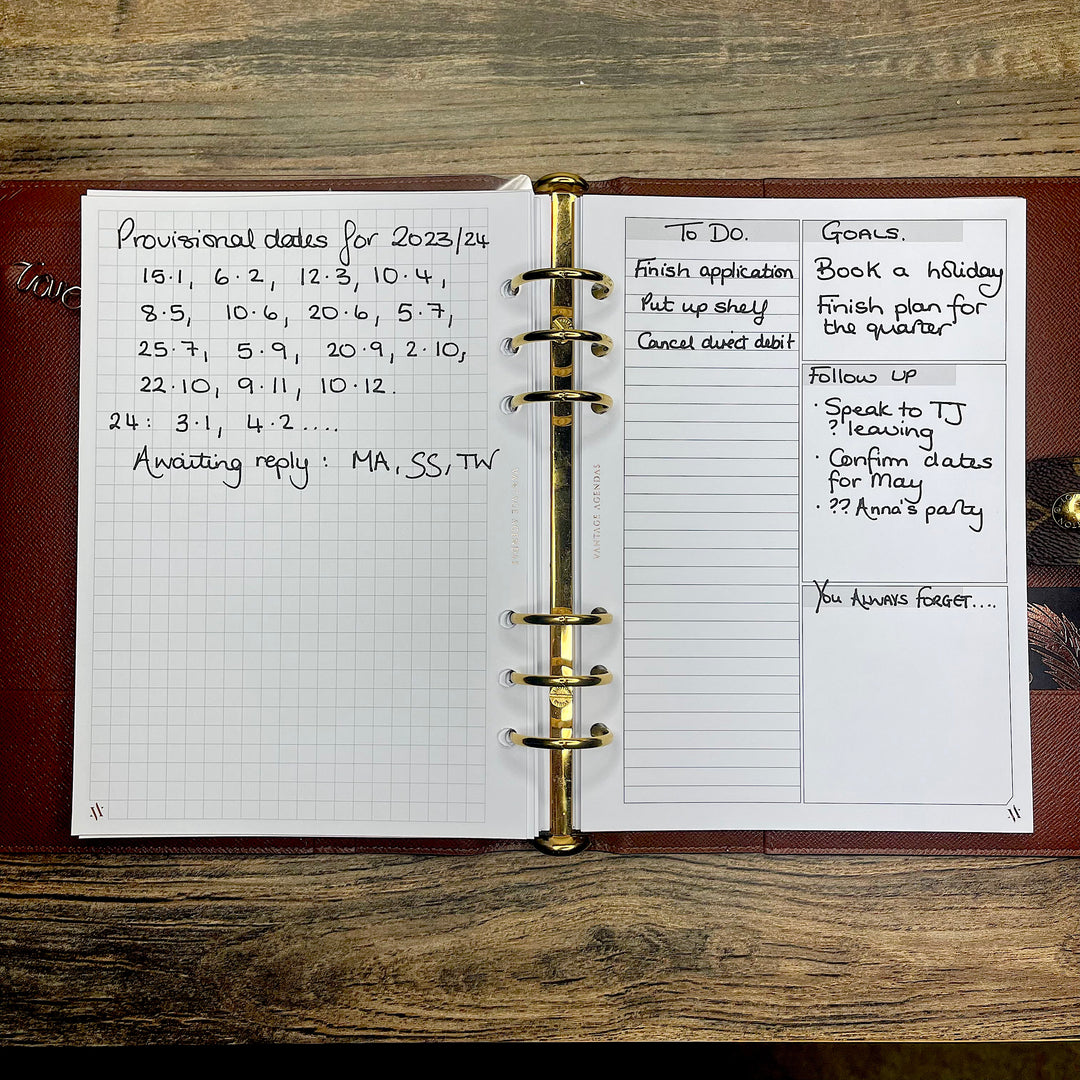 Provisional dates for 2023/24
15·1, 6·2, 12·3, 10·4,
8·5, 10·6, 20·6, 5·7,
25·7, 5·9, 20·9, 2·10,
22·10, 9·11, 10·12.
24: 3·1, 4·2....
Awaiting reply: MA, SS, TW
VANTAGE AGENDAS
VANTAGE AGENDAS
To Do.
Finish application
Put up shelf
Cancel direct debit
GOALS.
Book a holiday
Finish plan for
the quarter
Follow UP
· Speak to TJ
? leaving
· Confirm dates
for May
· ?? Anna's party
You ALWAYS FORGET....